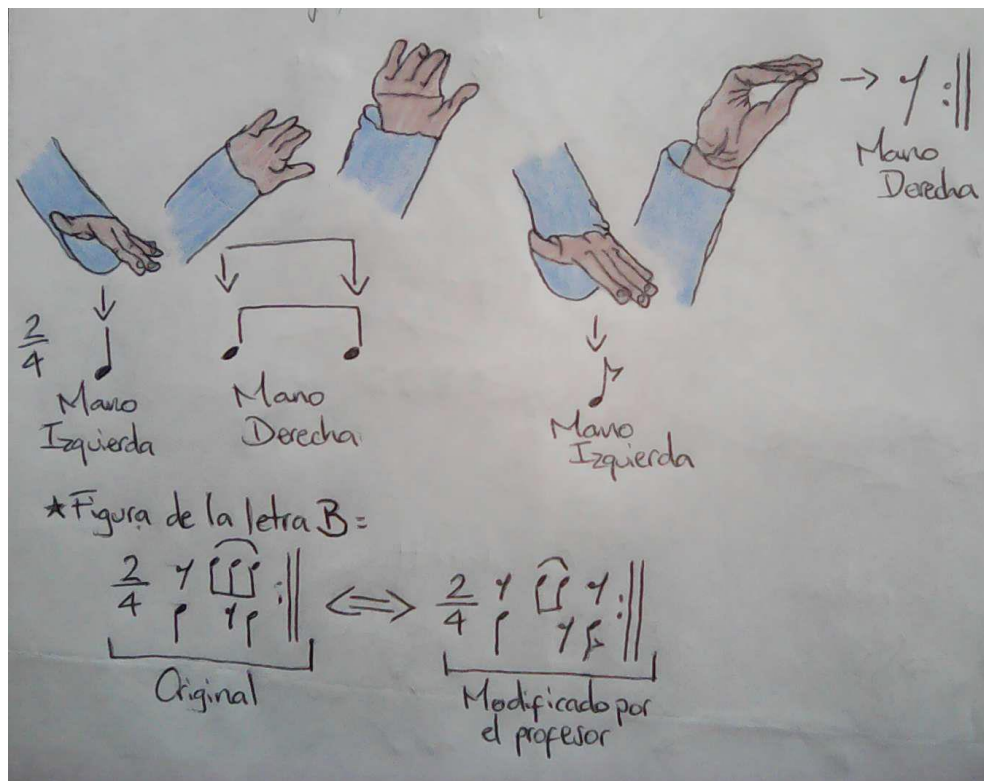 Mano
Derecha
2
4
Mano
Izquierda
Mano
Derecha
Mano
Izquierda
*Figura de la letra B=
2
4
2
4
Original
Modificado por
el profesor